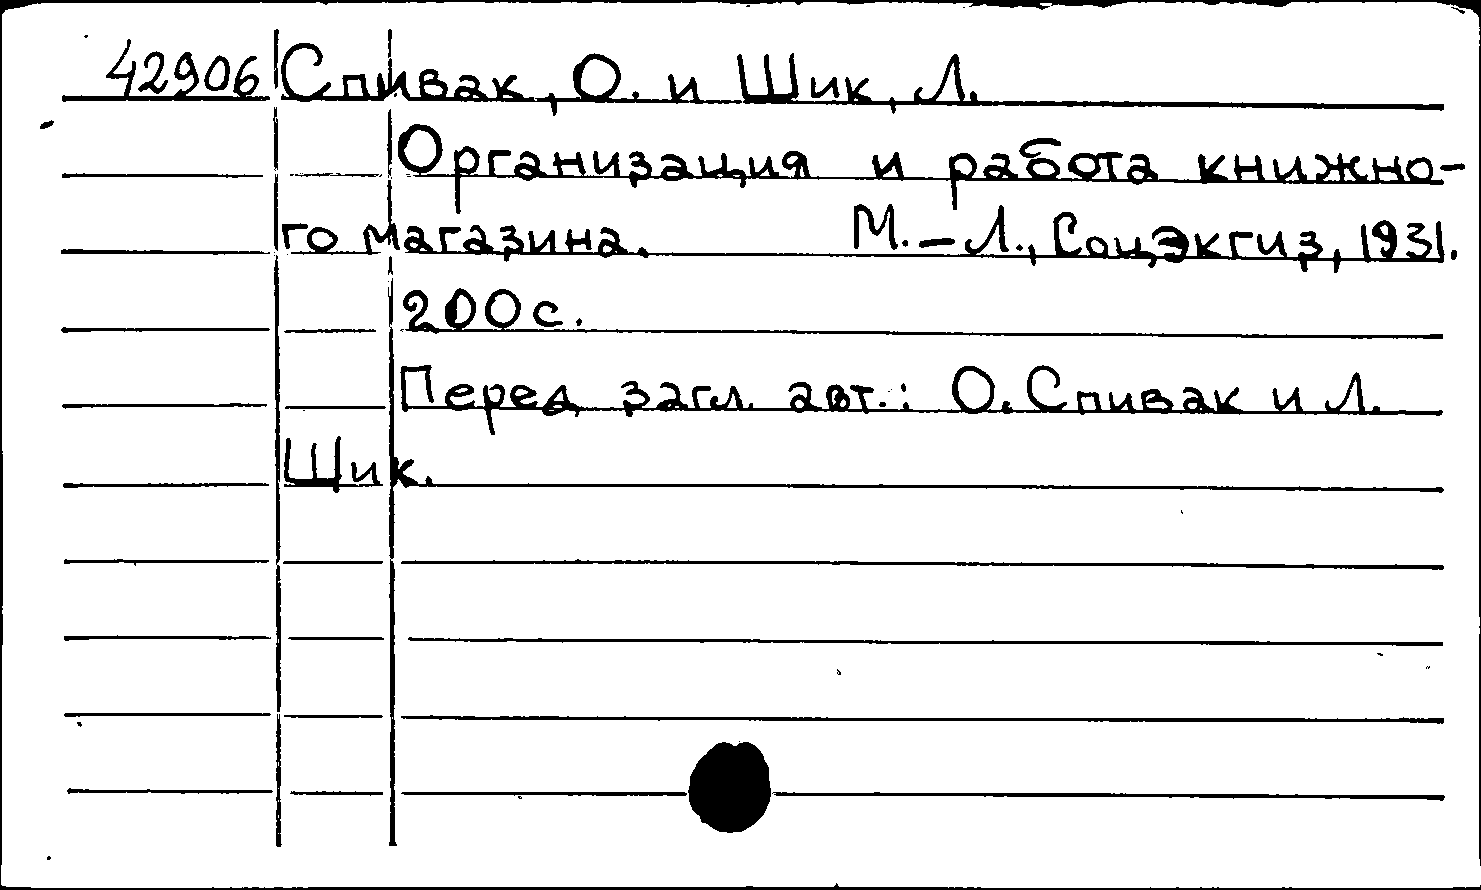 42906 Спивак, О. и Шик, Л.
Организация и работа книжно-
го магазина. М.-Л., Соцэкгиз, 1931.
200с.
Перед загл. авт.: О. Спивак и Л.
Шик.